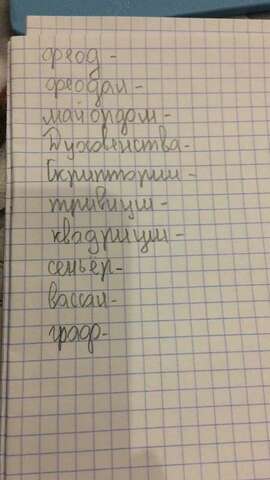 феод -
феодал -
майордом -
Духовенства -
Скриптории -
тривиум -
квадриум -
сеньёр -
вассал -
граф -